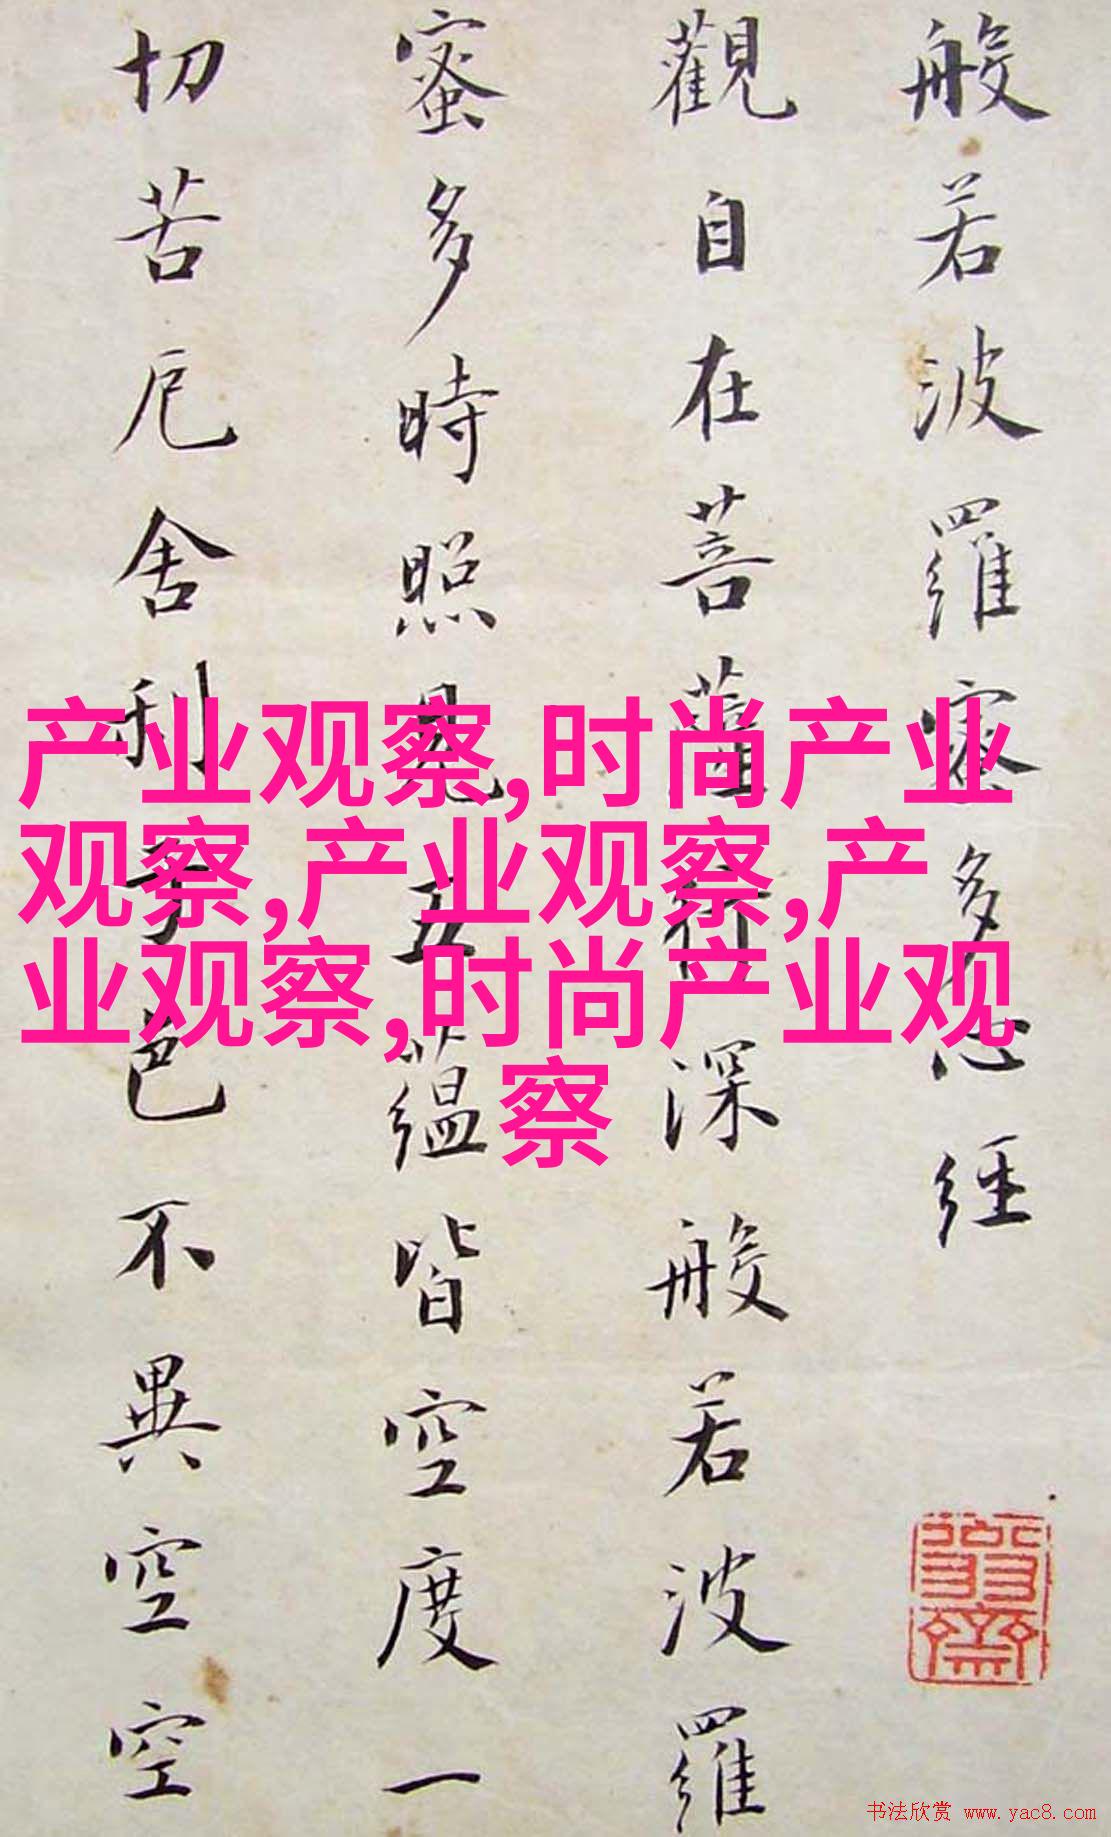 般若波羅蜜多心經
觀自在菩薩行深般若波羅
蜜多時照見五蘊皆空度一
切苦厄舍利子色不異空空
产业观察,时尚产业
观察,产业观察,产
业观察,时尚产业观
察
书法欣赏 www.yac8.com